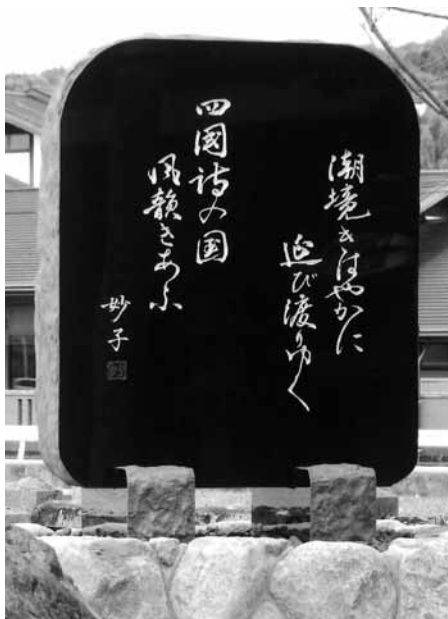 潮境きはやかに
延び渡りゆく
四國詩の国
風韻きあふ
妙子